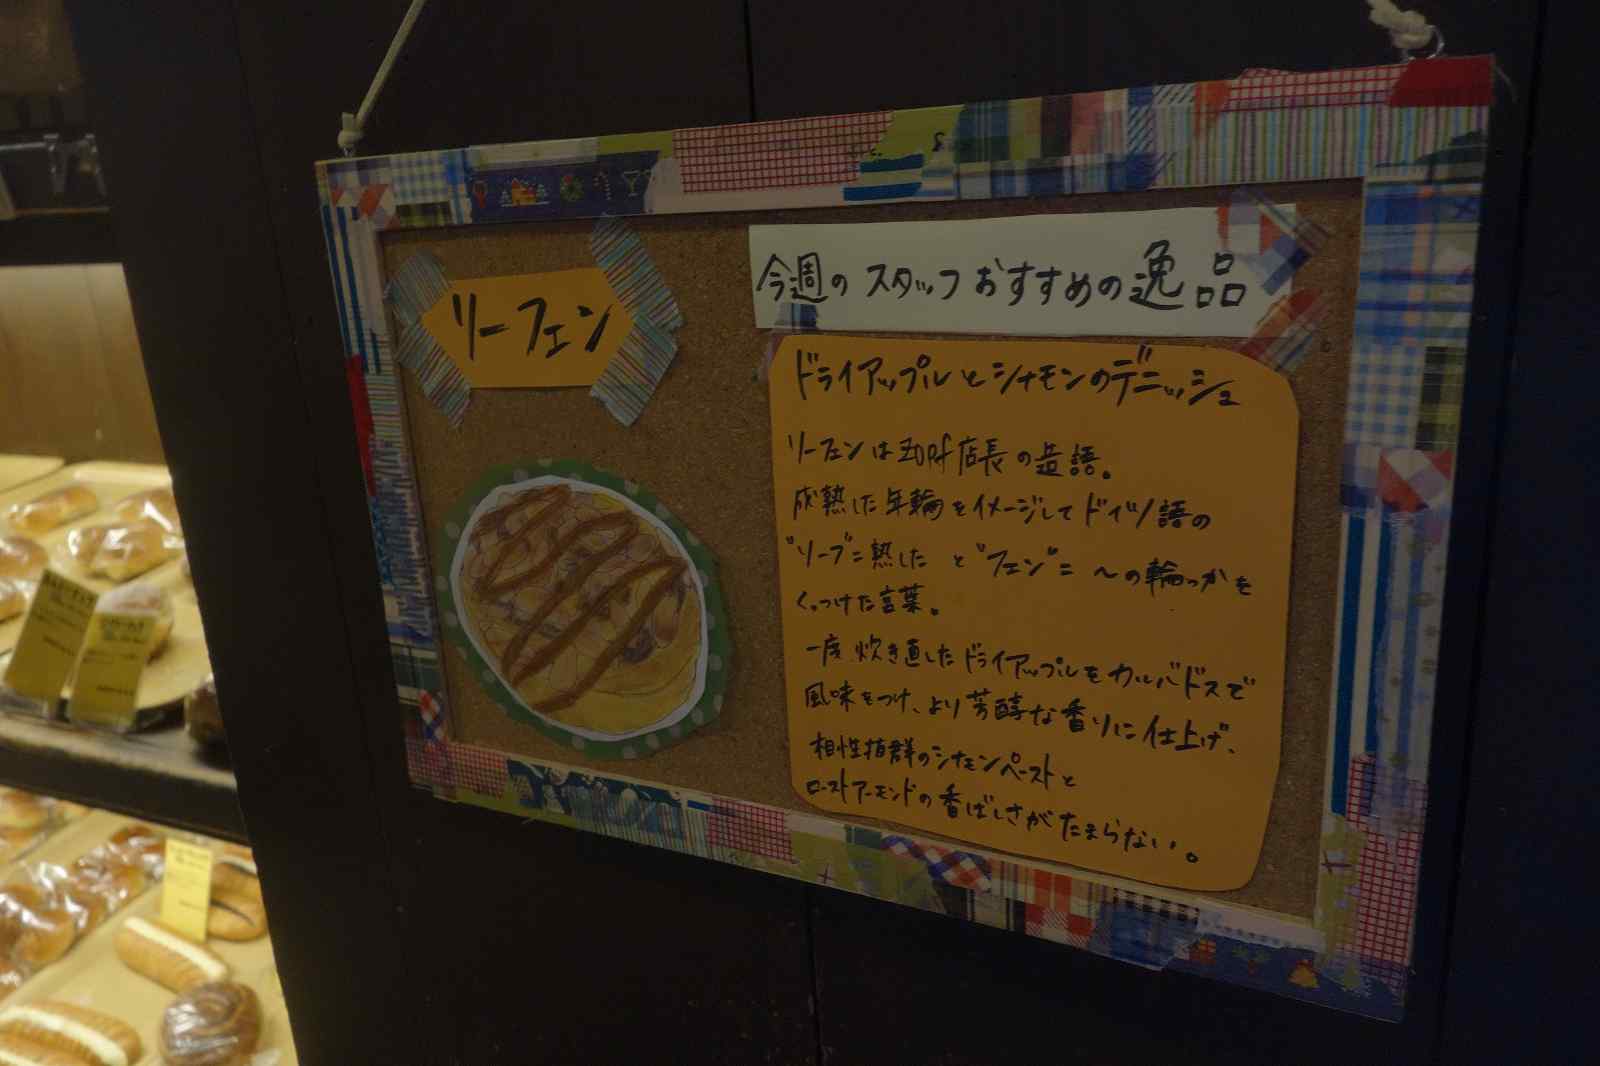 リーフェン
今週のスタッフおすすめの逸品
ドライアップルとシナモンのデニッシュ
リーフェンはZopf店長の造語。
成熟した年輪をイメージしてドイツ語の
"リーブ"=熟した と "フェン"= 〜の輪っかを
くっつけた言葉。
一度炊き直したドライアップルをカルバドスで
風味をつけ、より芳醇な香りに仕上げ、
相性抜群のシナモンペーストと
ローストアーモンドの香ばしさがたまらない。